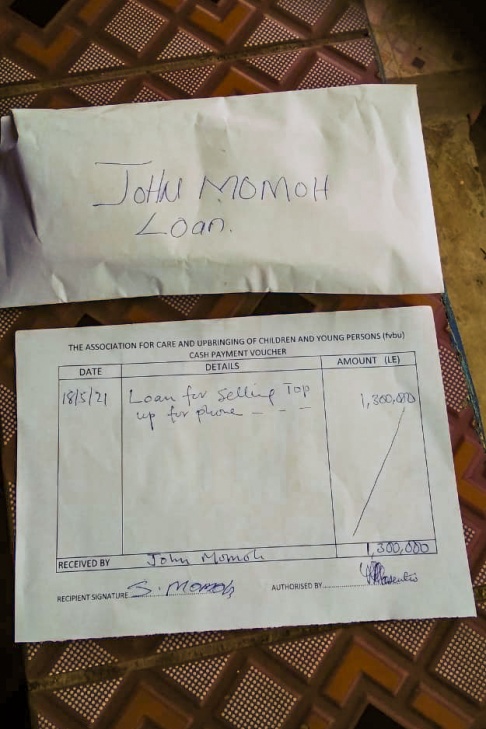 JOHN MOMOH
Loan.
THE ASSOCIATION FOR CARE AND UPBRINGING OF CHILDREN AND YOUNG PERSONS (fvbu)
CASH PAYMENT VOUCHER
DATE DETAILS AMOUNT (LE)
18/5/21 Loan for selling Top 1,300,000
up for phone - - -
1,300,000
RECEIVED BY John Momoh
RECIPIENT SIGNATURE S. MOMOH AUTHORISED BY